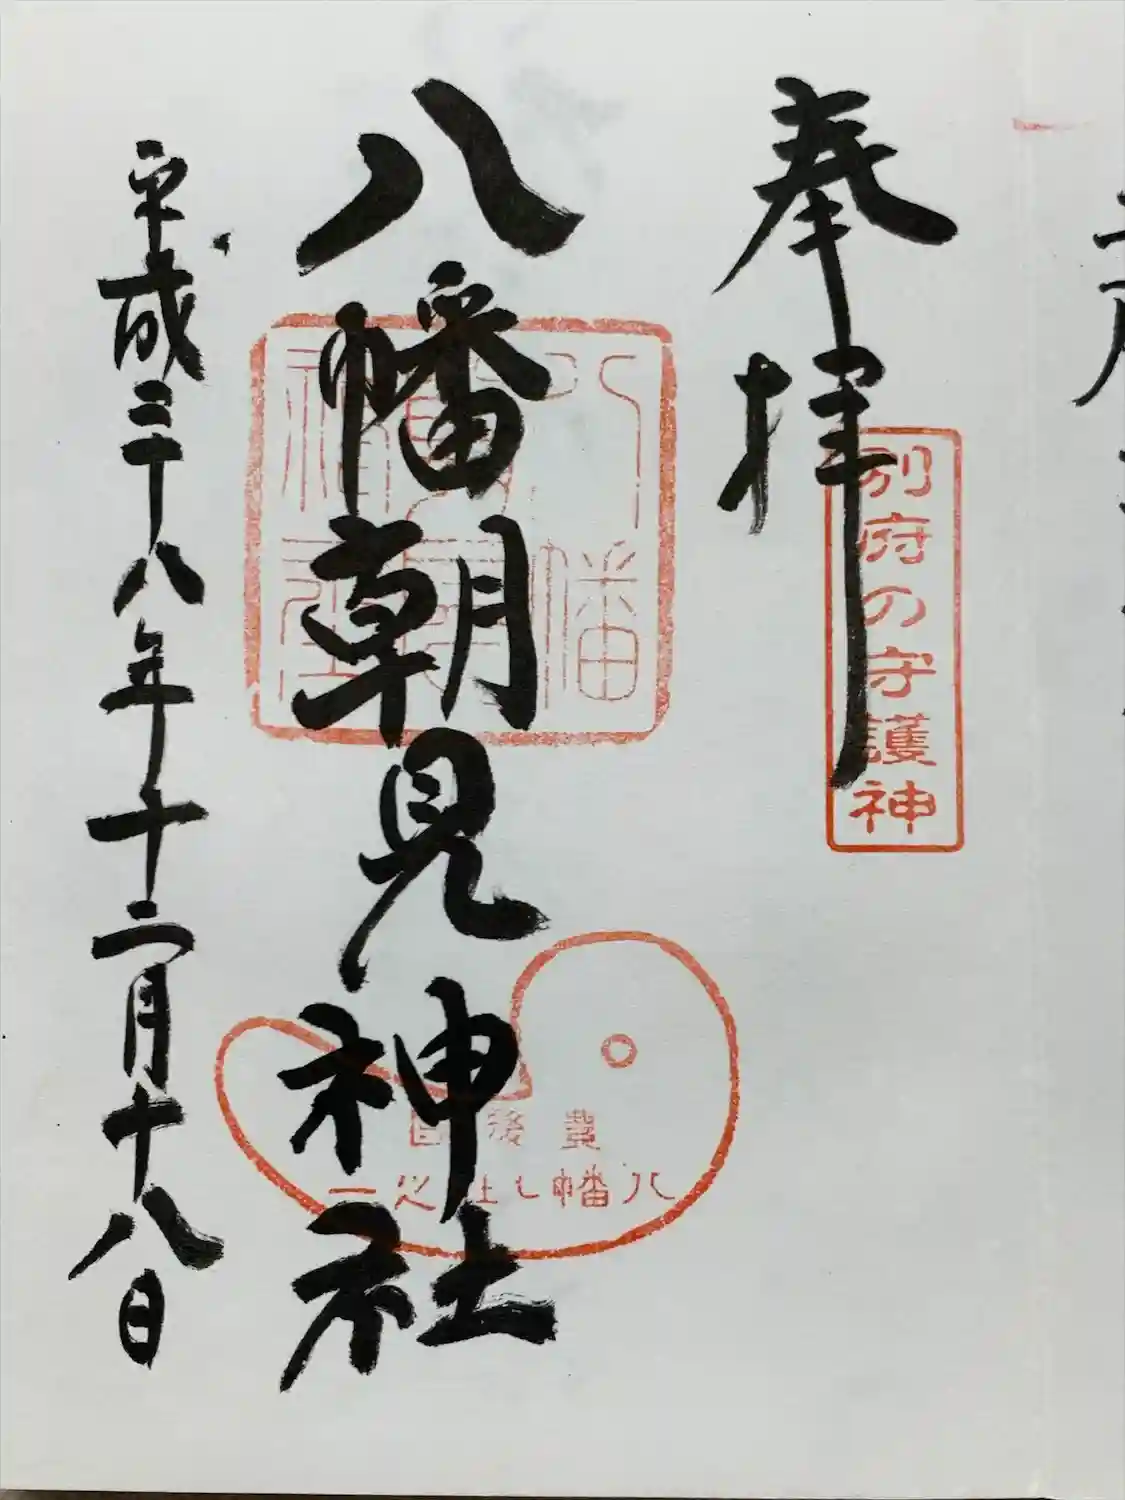 奉拝
別府の守護神
八幡朝見神社
八幡
豊後国
八幡七社之一
平成二十八年十二月十八日